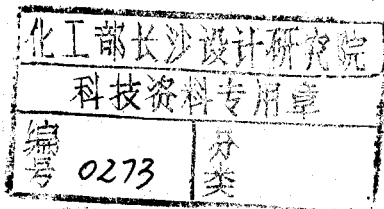 化工部长沙设计研究院
科技资料专用章
编号 0273 分类